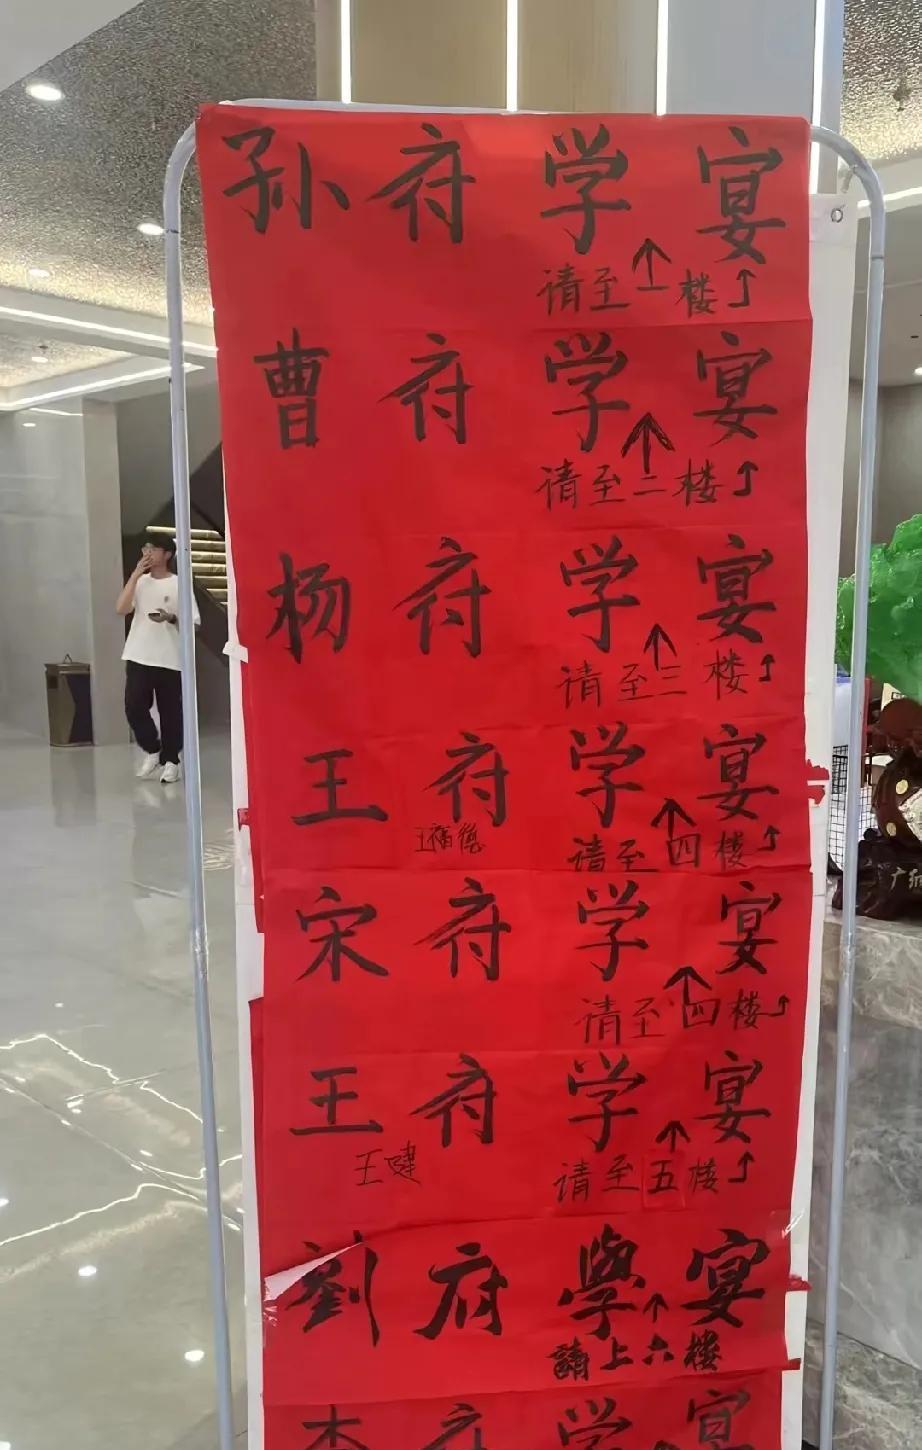 孙府学宴
请至一楼
曹府学宴
请至二楼
杨府学宴
请至三楼
王府学宴
王福德
请至四楼
宋府学宴
请至四楼
王府学宴
王健
请至五楼
劉府學宴
請上六樓
李府学宴